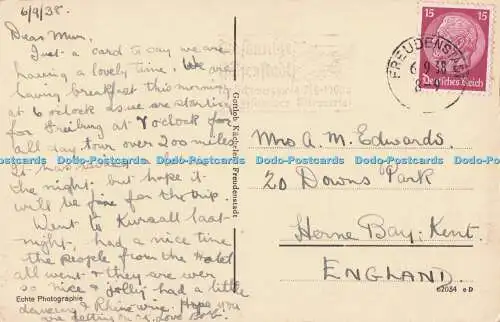 6/9/38.
Dear Mum,
Just a card to say we are
having a lovely time. We are
having breakfast this morning
at 6 oclock as we are starting
for Freiburg at 7 oclock for
all day tour over 200 miles
It has
the night but hope it
will be fine for the trip.
Went to Kursall last
night, had a nice time
the people from the Hotel
all went & they are ever
so nice & jolly had a little
dancing & Rhine wine. Hope you
are getting on Love Bob.
Echte Photographie
Gottlob Kächele, Freudenstadt
FREUDENSTADT
6.9.38
15 15
Deutsches Reich
Mrs A. M. Edwards.
20 Downs Park
Herne Bay: Kent.
ENGLAND.
62034 e D
Dodo-Postcards Dodo-Postcards Dodo-Postcards Dodo-Postcards Dodo-Postcards Dodo-Postcards